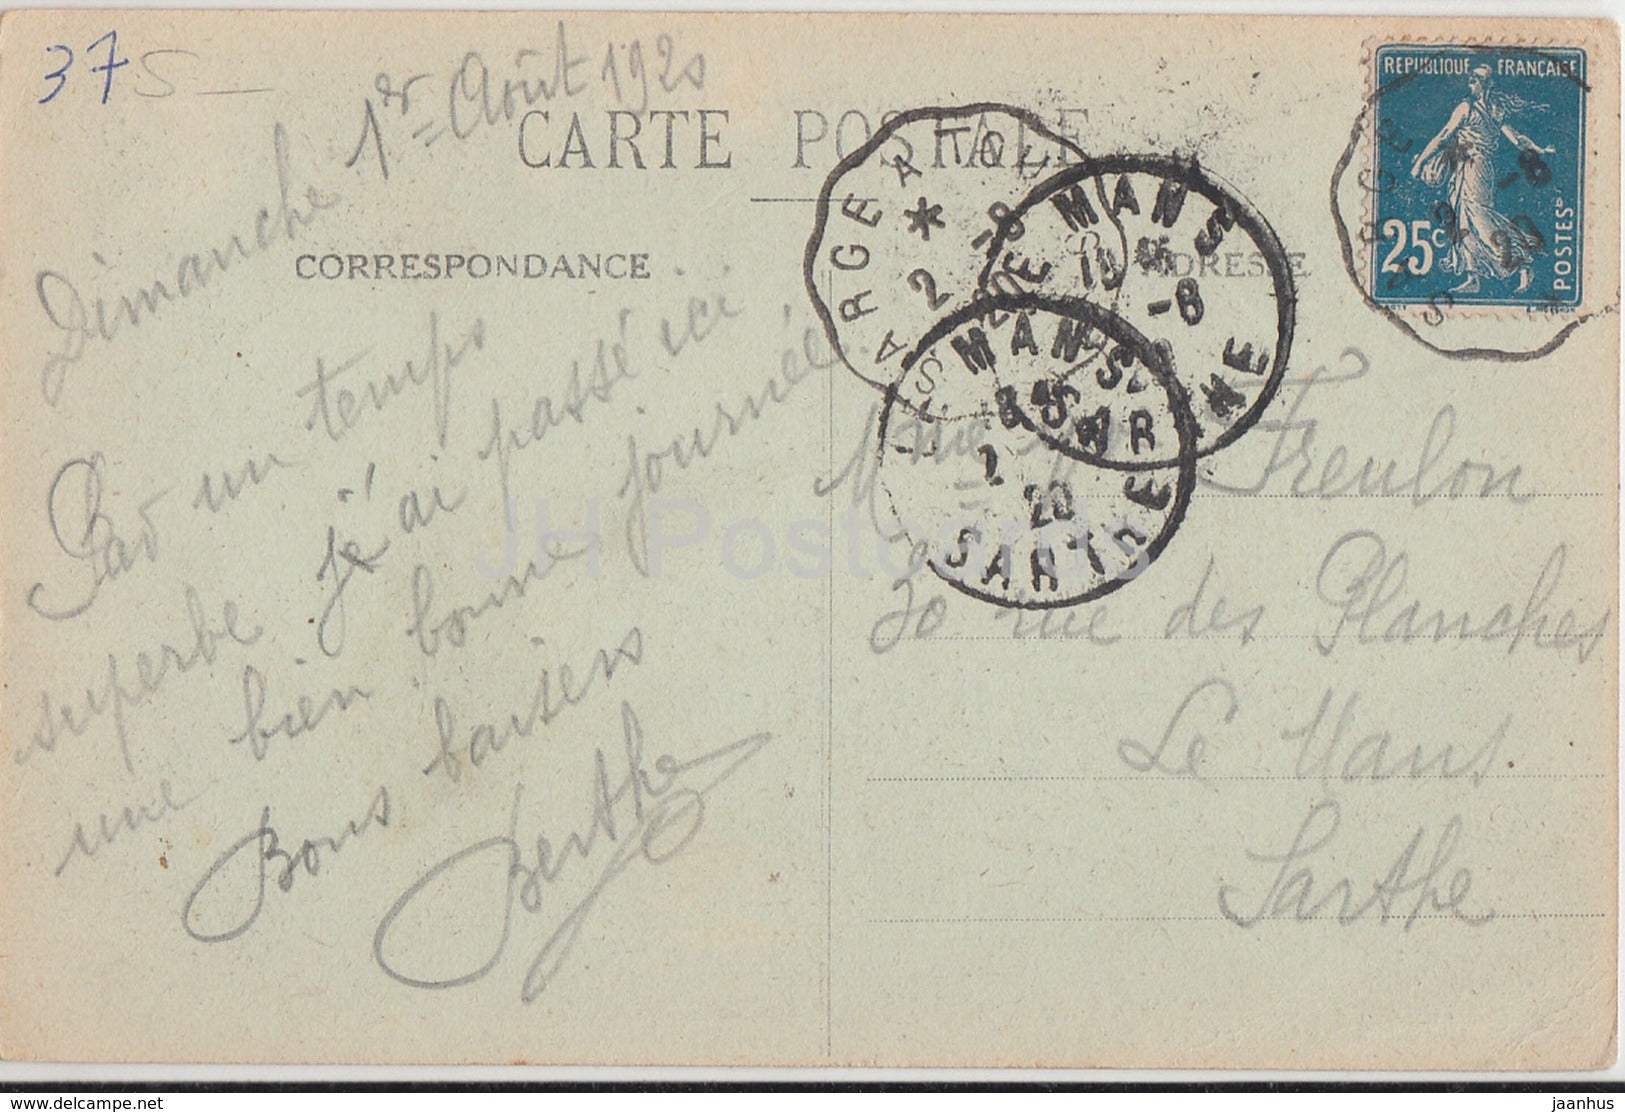 37 S
Dimanche 1er Août 1920
CARTE POSTALE
CORRESPONDANCE
ADRESSE
Par un temps
superbe j'ai passé ici
une bien bonne journée.
Bons baisers
Berthe
REPUBLIQUE FRANÇAISE
25c
POSTES
SARGE A TOU
2 -8 20
LE MANS
SARTHE
-8
LE MANS
SARTHE
2 8 20
SARGE
2 -8 20
Mme Vve Freulon
30 rue des Planches
Le Mans
Sarthe
JH Postcards
www.delcampe.net
jaanhus